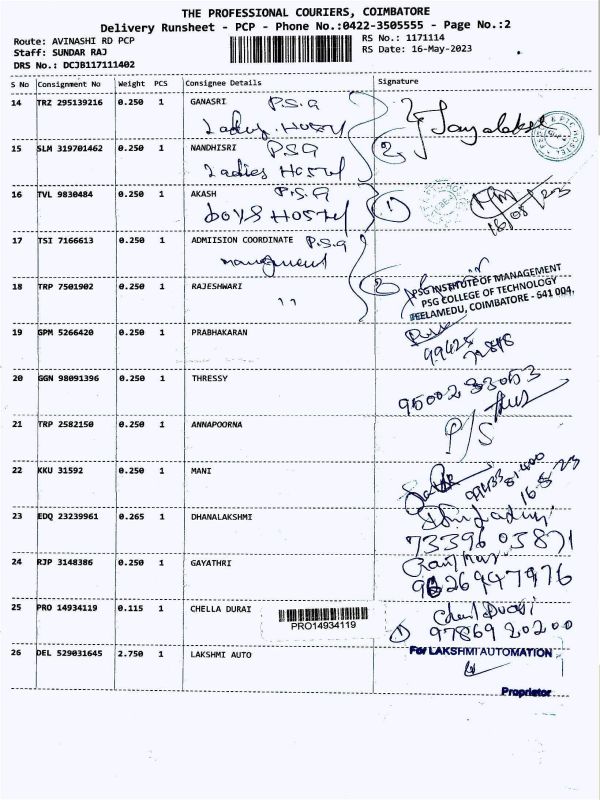 THE PROFESSIONAL COURIERS, COIMBATORE
Delivery Runsheet - PCP - Phone No.:0422-3505555 - Page No.:2
Route: AVINASHI RD PCP RS No.: 1171114
Staff: SUNDAR RAJ RS Date: 16-May-2023
DRS No.: DCJB117111402
S No Consignment No Weight PCS Consignee Details Signature
14 TRZ 295139216 0.250 1 GANASRI P.S.G
Ladies Hostel
15 SLM 319701462 0.250 1 NANDHISRI PSG 2
Ladies Hostel
16 TVL 9830484 0.250 1 AKASH P.S.G 1
boys Hostel 16/05/23
17 TSI 7166613 0.250 1 ADMIISION COORDINATE P.S.G
management
18 TRP 7501902 0.250 1 RAJESHWARI 2
"
PSG INSTITUTE OF MANAGEMENT
PSG COLLEGE OF TECHNOLOGY
PEELAMEDU, COIMBATORE - 641 004.
19 GPM 5266420 0.250 1 PRABHAKARAN
20 GGN 98091396 0.250 1 THRESSY
95002 33053
21 TRP 2582150 0.250 1 ANNAPOORNA P/S
22 KKU 31592 0.250 1 MANI
16-5-23
23 EDQ 23239961 0.265 1 DHANALAKSHMI
73396 03871
24 RJP 3148386 0.250 1 GAYATHRI
9626947976
25 PRO 14934119 0.115 1 CHELLA DURAI
PRO14934119
1 97869 20200
26 DEL 529031645 2.750 1 LAKSHMI AUTO For LAKSHMI AUTOMATION
Proprietor